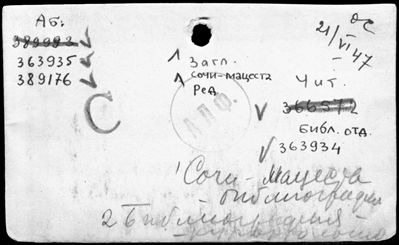 Аб.
389992
363935
389176
С
Загл.
Сочи-Мацеста
Ред.
21/VI 47
Чит.
366572
Библ. отд.
363934
1 Сочи - Мацеста
- библиография
2 Библиография